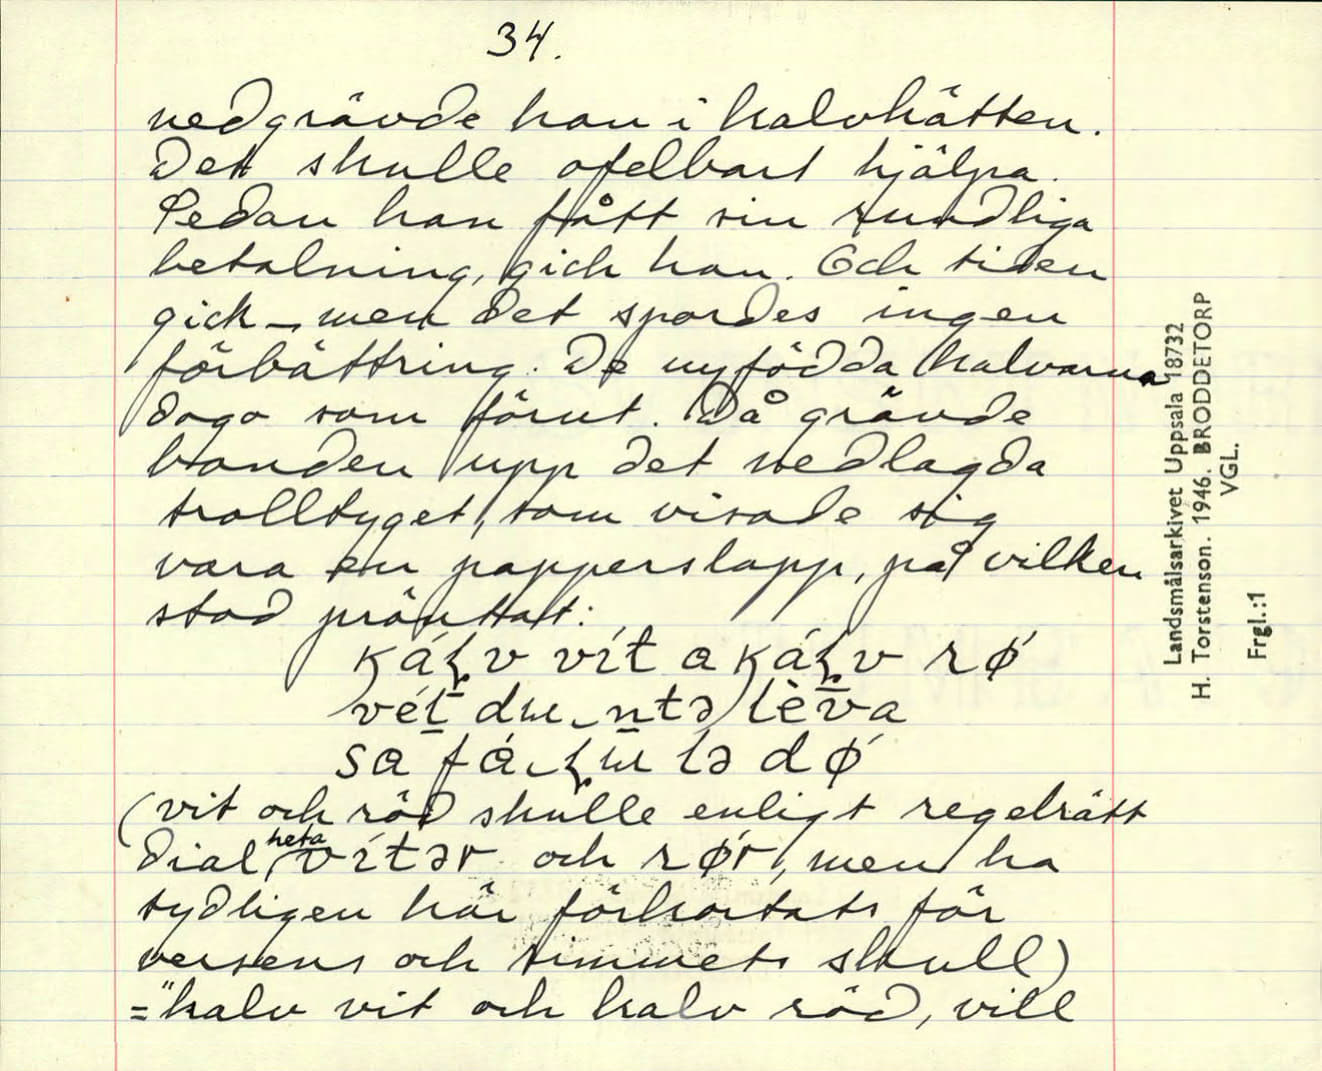 34.
nedgrävde han i kalvkätten.
Det skulle ofelbart hjälpa.
Sedan han fått sin rundliga
betalning, gick han. Och tiden
gick – men det spordes ingen
förbättring. De nyfödda kalvarna
dogo som förut. Då grävde
bonden upp det nedlagda
trolltyget, som visade sig
vara en papperslapp, på vilken
stod präntat:
káɽv vít a káɽv rø´
vét du ntə lèva
sa fá ɽu lə dø´
(vit och röd skulle enligt regelrätt
dial. heta vítər och rør, men ha
tydligen här förkortats för
versens och rimmets skull)
="kalv vit och kalv röd, vill
Landsmålsarkivet Uppsala 18732
H. Torstenson. 1946. BRODDETORP
VGL.
Frgl.:1